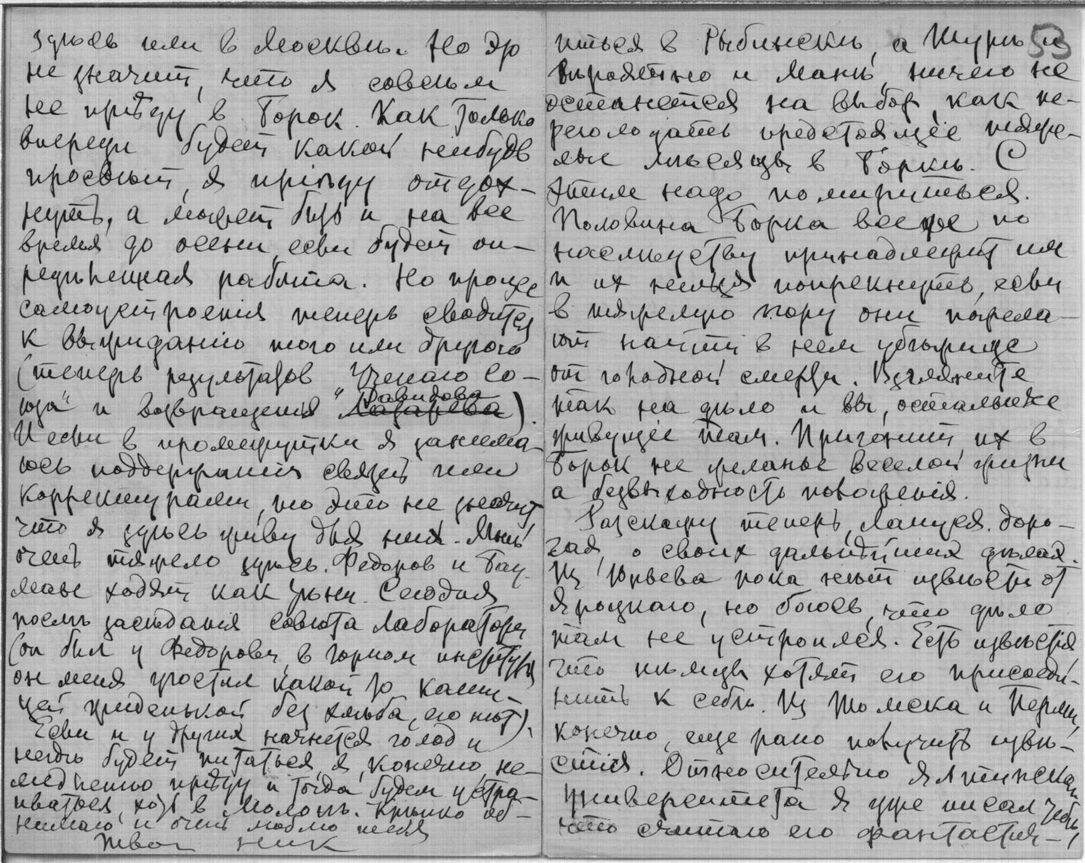 здѣсь или в Москвѣ. Но это
не значит, что я совсѣм
не пріѣду в Борок. Как только
впереди будет какой нибудь
просвѣт, я пріѣду отдох-
нуть, а может быть и на все
время до осени, если будет оп-
редѣленная работа. Но процесс
самоустроенія теперь сводится
к выжиданію того или другого
(теперь результатов "Ученаго Со-
юза" и возвращенія Давидова
Лазарева).
И если в промежутки я занима-
юсь поддержаніем связей или
корректурами, то это не значит
что я здѣсь живу для них. Мнѣ
очень тяжело здѣсь. Федоров и Бау-
ман ходят как тѣни. Сегодня
послѣ засѣданія совѣта Лаборатории
(он был у Федорова, в Горном институтѣ)
он меня угостил какой то каши-
цей жиденькой без хлѣба, его нѣт).
Если и у других начнется голод и
негдѣ будет питаться я, конечно не-
медленно пріѣду и тогда будем устра-
иваться, хоть в Мологѣ. Крѣпко об-
нимаю и очень люблю тебя
Твой Ник
53
иться в Рыбинскѣ, а Шурѣ и
вѣроятно и Манѣ, ничего не
останется на выбор, как пе-
реголодать предстоящіе тяже-
лые мѣсяцы в Боркѣ. С
этим надо помириться.
Половина Борка все же по
наслѣдству принадлежит им
и их нельзя попрекнуть, если
в тяжелую пору они пожела-
ют найти в нем убѣжище
от голодной смерти. Взгляните
так на дѣло и вы, остальные
живущіе там. Пригонит их в
Борок не желанье веселой жизни
а безвыходность положенія.
Разскажу теперь, Мануся доро-
гая, о своих дальнѣйших дѣлах.
Из Юрьева пока нѣт извѣстій от
Яроцкаго, но боюсь, что дѣло
там не устроилось. Есть извѣстія
что нѣмцы хотят его присоеди-
нить к себѣ. Из Томска и Перми,
конечно, еще рано получить извѣ-
стія. Относительно Ялтинскаго
Университета я уже писал тебѣ,
что считаю его фантасти-